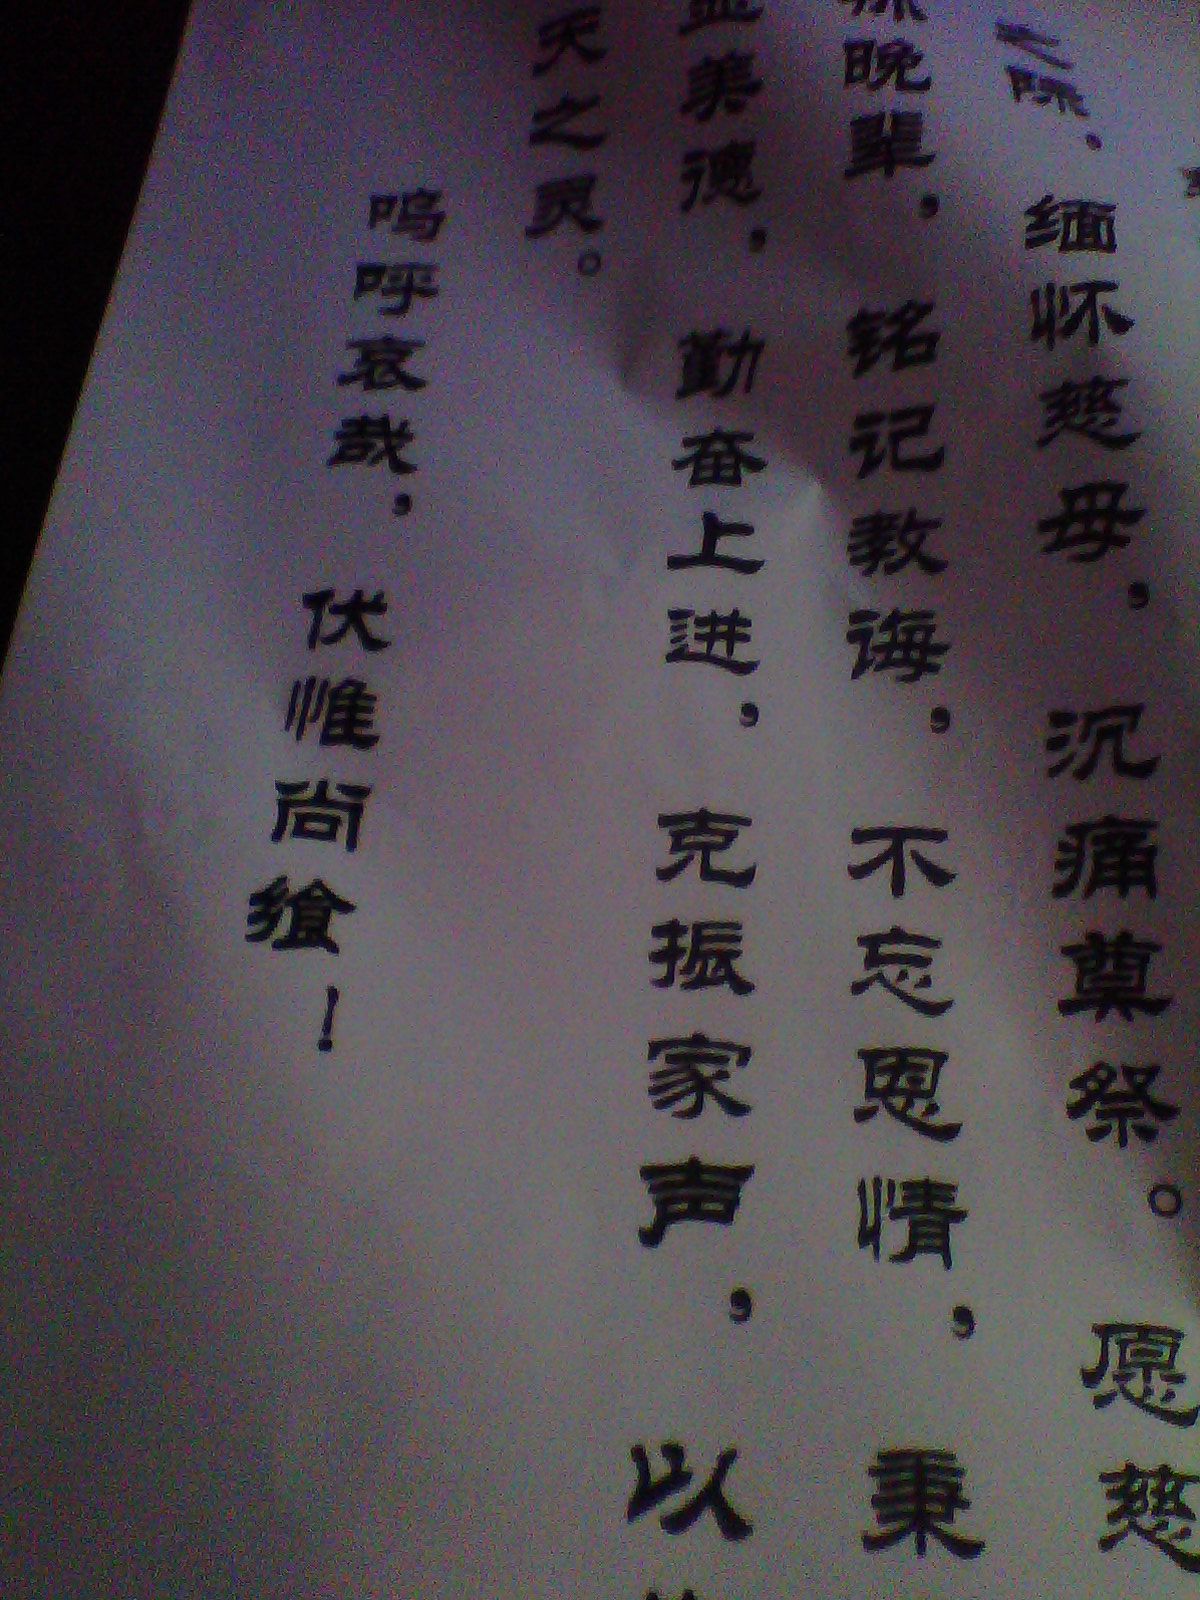 之际，缅怀慈母，沉痛奠祭。愿慈
晚辈，铭记教诲，不忘恩情，秉
美德，勤奋上进，克振家声，以
天之灵。
呜呼哀哉，伏惟尚飨！